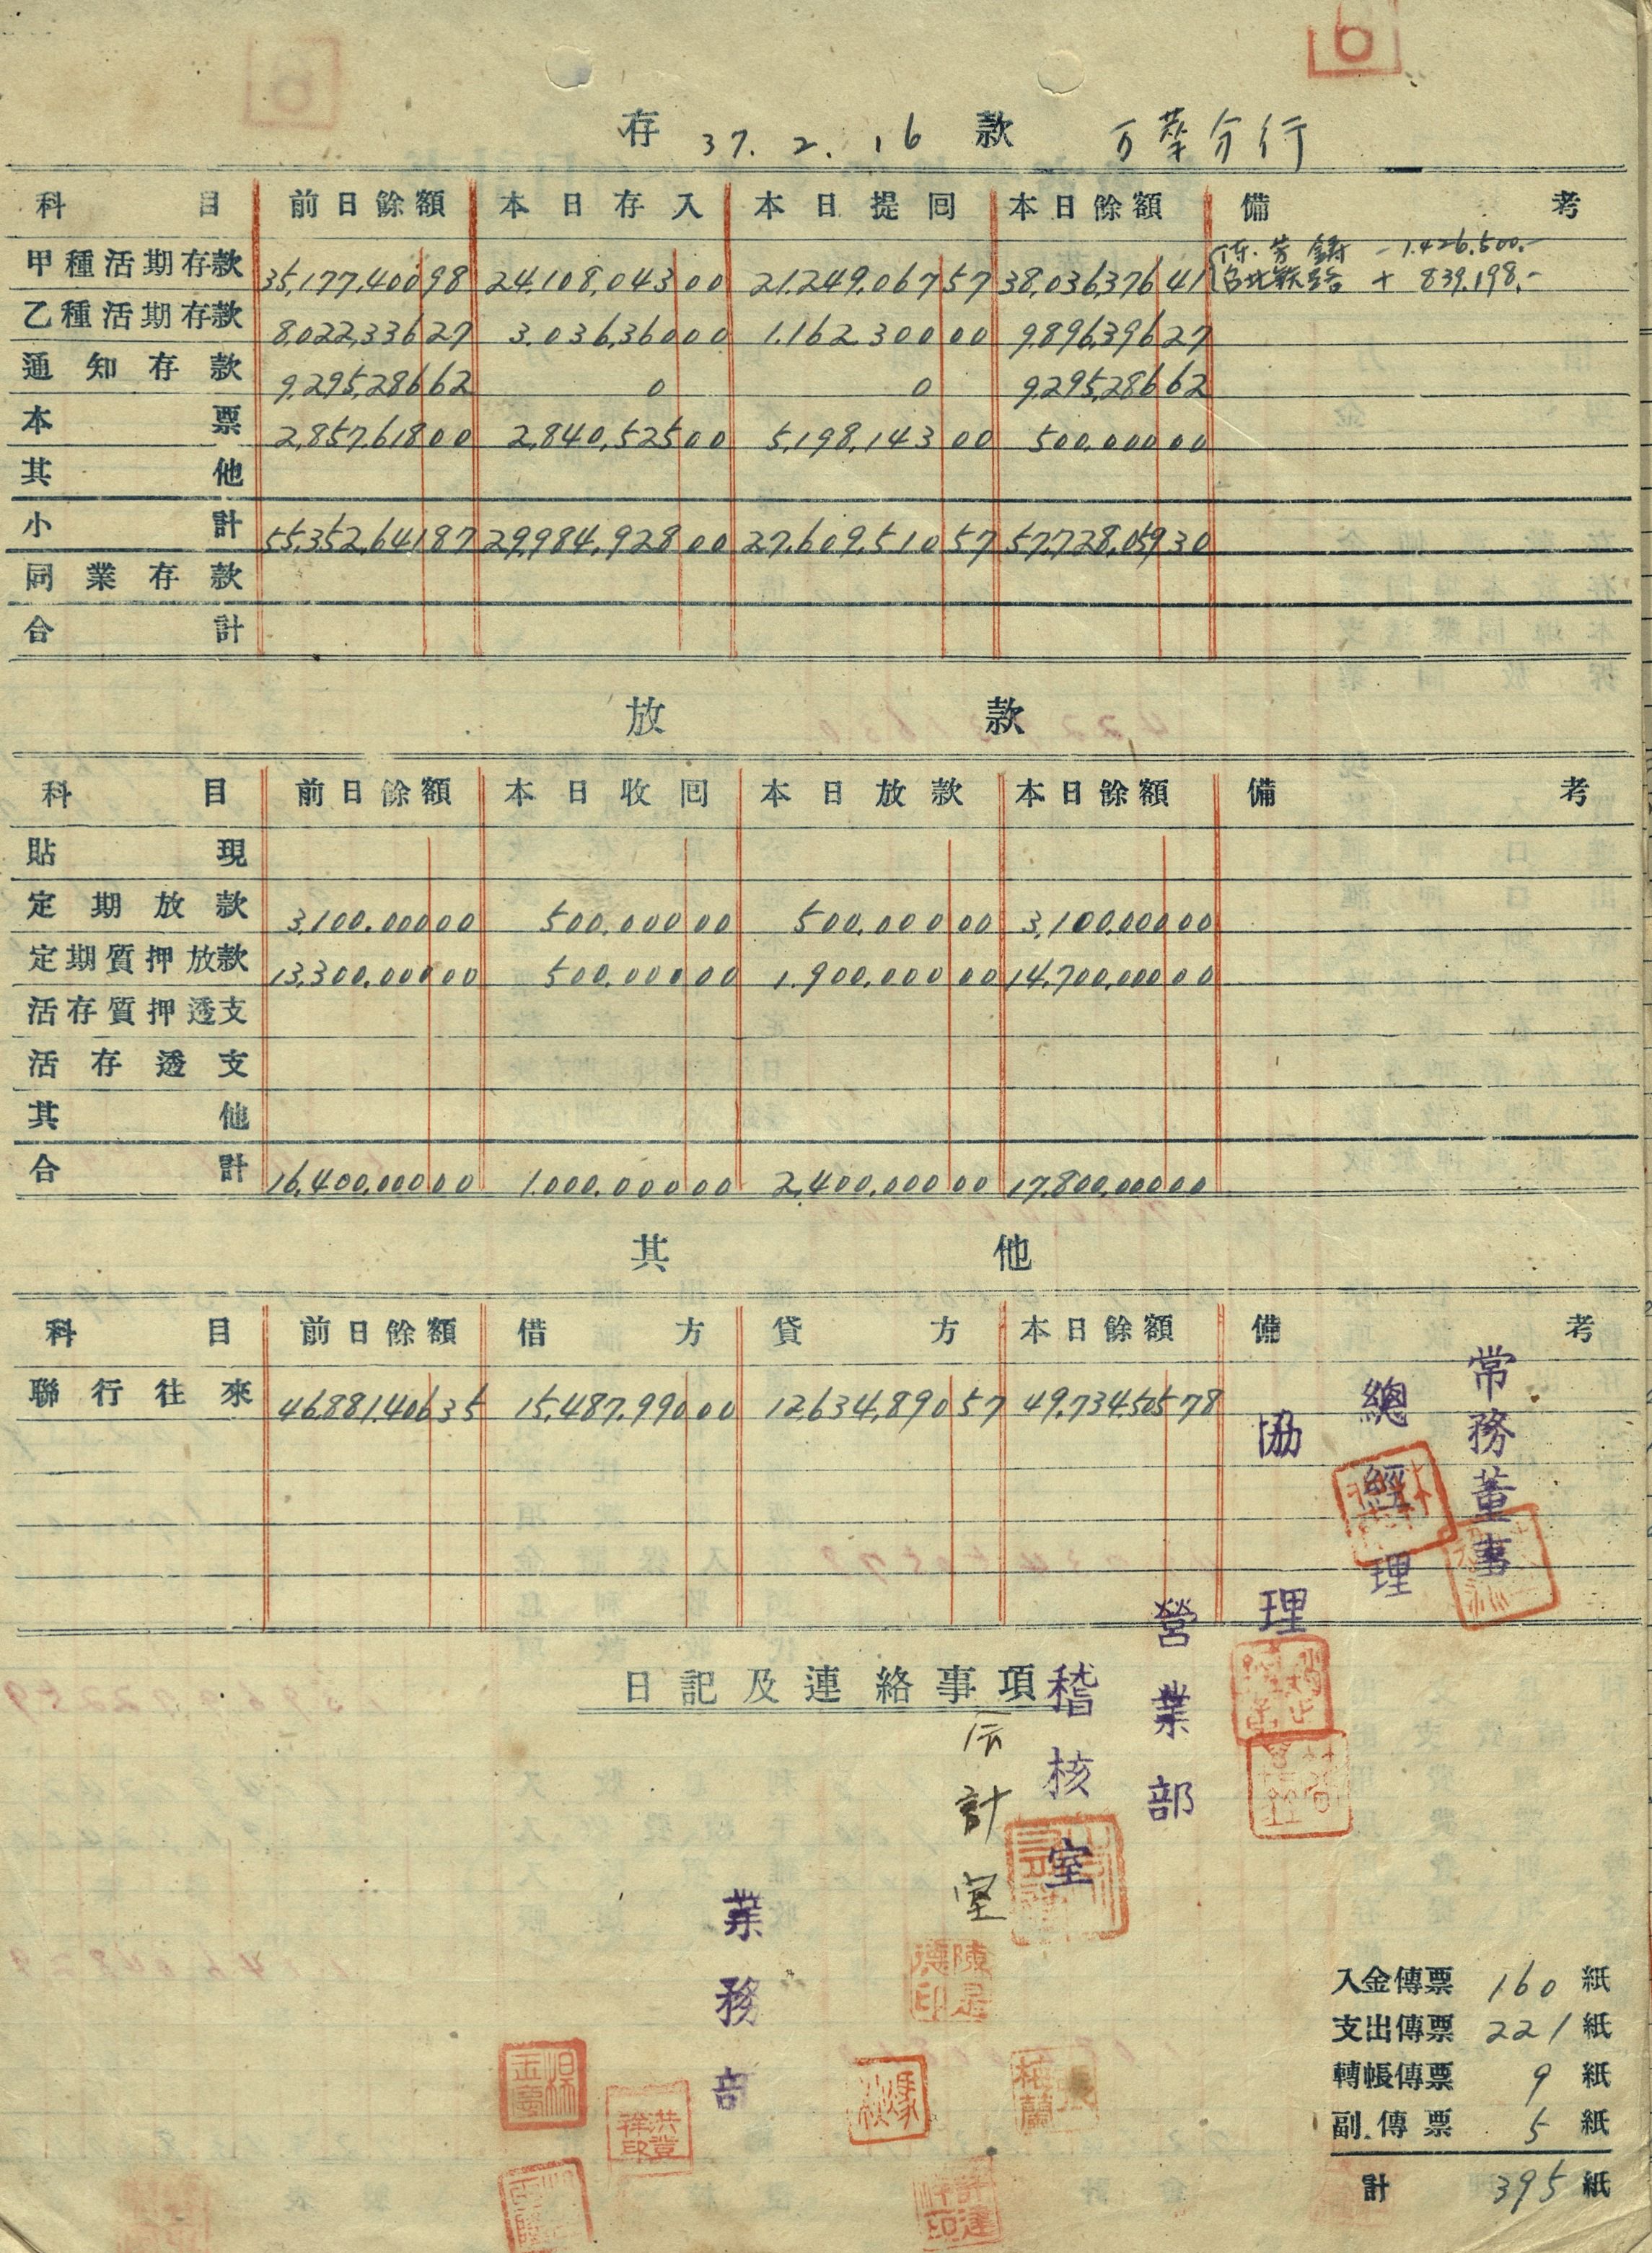 6
存 37. 2. 16 款 万華分行
科目 前日餘額 本日存入 本日提回 本日餘額 備考
甲種活期存款 35,177,400 98 24,108,043 00 21,249,067 57 38,036,376 41 -1,426,500.-
台北聯合 + 839,198.-
乙種活期存款 8,022,336 27 3,036,360 00 1,162,300 00 9,896,396 27
通知存款 9,295,286 62 0 0 9,295,286 62
本票 2,857,618 00 2,840,525 00 5,198,143 00 500,000 00
其他
小計 55,352,641 87 29,984,928 00 27,609,510 57 57,728,059 30
同業存款
合計
放款
科目 前日餘額 本日收回 本日放款 本日餘額 備考
貼現
定期放款 3,100,000 00 500,000 00 500,000 00 3,100,000 00
定期質押放款 13,300,000 00 500,000 00 1,900,000 00 14,700,000 00
活存質押透支
活存透支
其他
合計 16,400,000 00 1,000,000 00 2,400,000 00 17,800,000 00
其他
科目 前日餘額 借方 貸方 本日餘額 備考
聯行往來 46,881,406 35 15,487,990 00 12,634,890 57 49,734,505 78
常務董事
總經理
協理
營業部
稽核室
会計室
業務部
日記及連絡事項
入金傳票 160 紙
支出傳票 221 紙
轉帳傳票 9 紙
副傳票 5 紙
計 395 紙